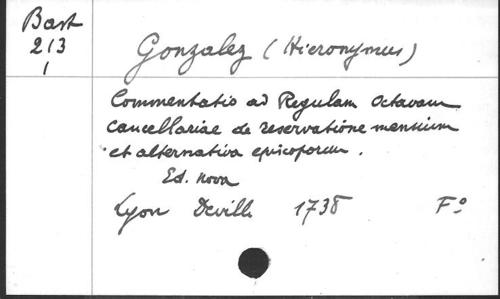 Bast
213
1
Gonzalez (Hieronymus)
Commentatio ad Regulam Octavam
Cancellariae de reservatione mensium
et alternativa episcoporum.
Ed. nova
Lyon Deville 1738 F°